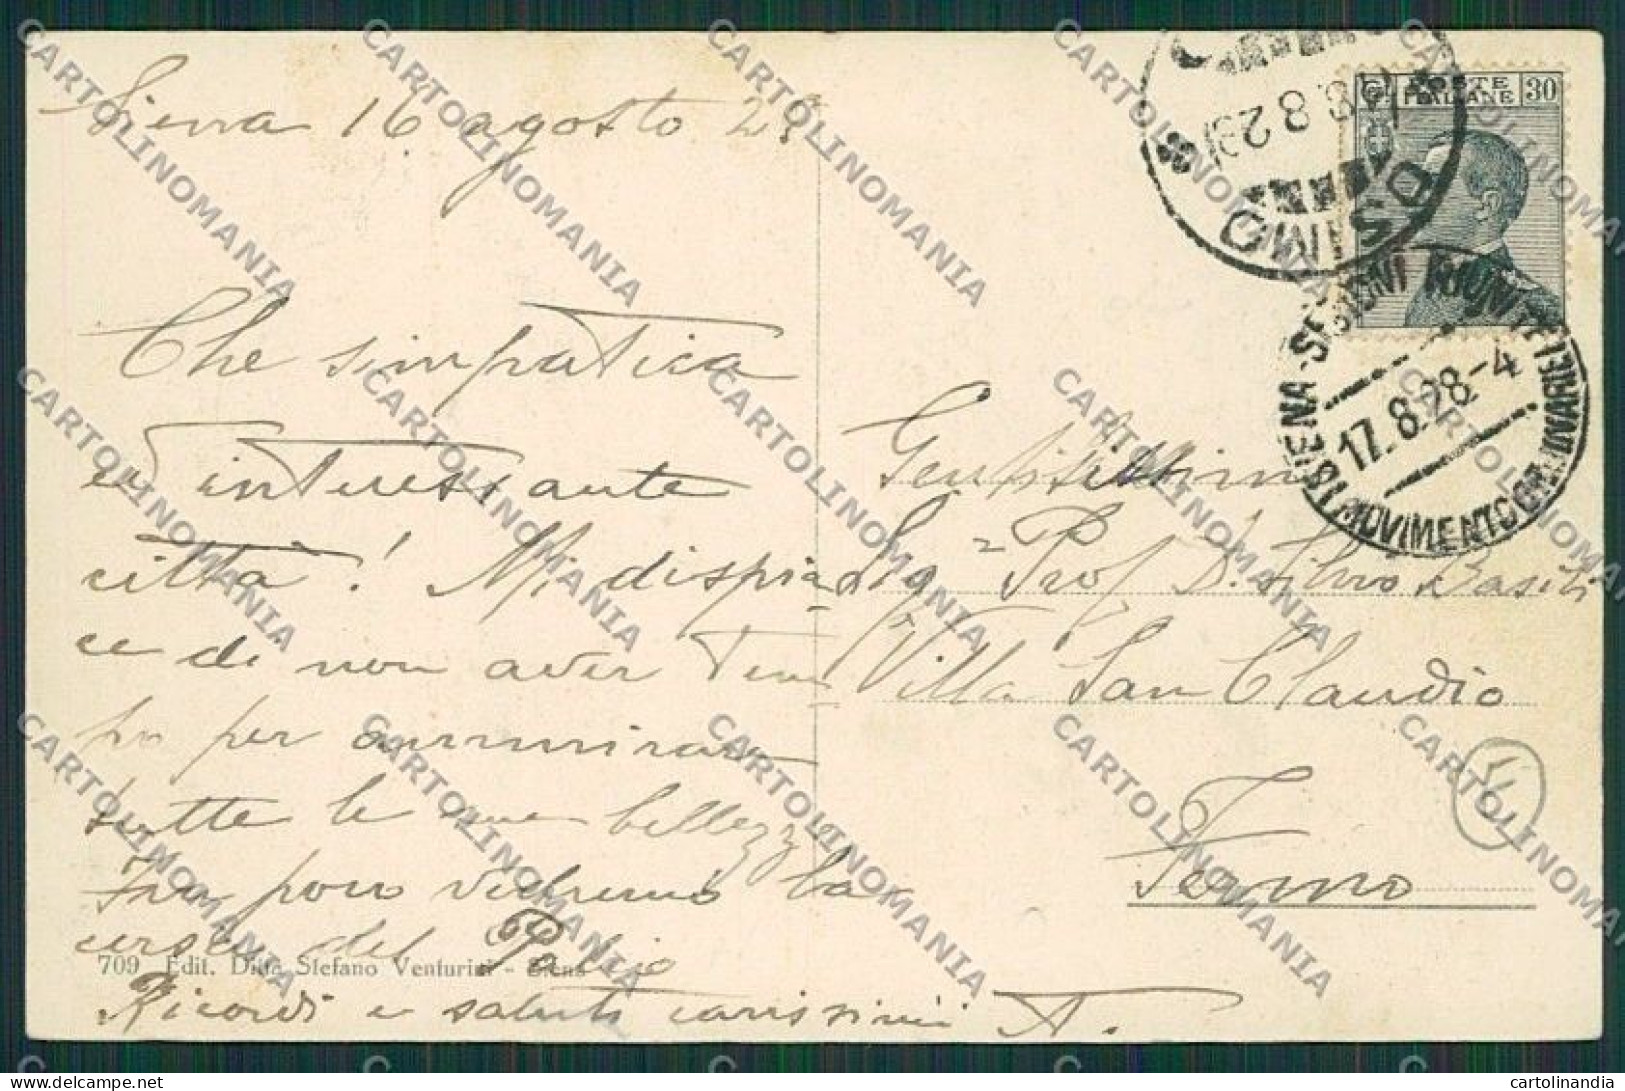 Siena 16 agosto 28
Che simpatica
ed interessante
città! Mi dispia=
ce di non aver tem
po per ammirare
tutte le sue bellezze
Fra poco vedremo la
corsa del Palio
Ricordi e saluti carissimi A.
709 Edit. Ditta Stefano Venturini - Siena
POSTE
ITALIANE
30
OSIMO
18 8 28
SIENA-SEZIONI RIUNITE
MOVIMENTO
17.8.28-4
Gentilissimo
Sig Prof D. Silvio
Villa San Claudio
Fermo
CARTOLINOMANIA
cartolinandia